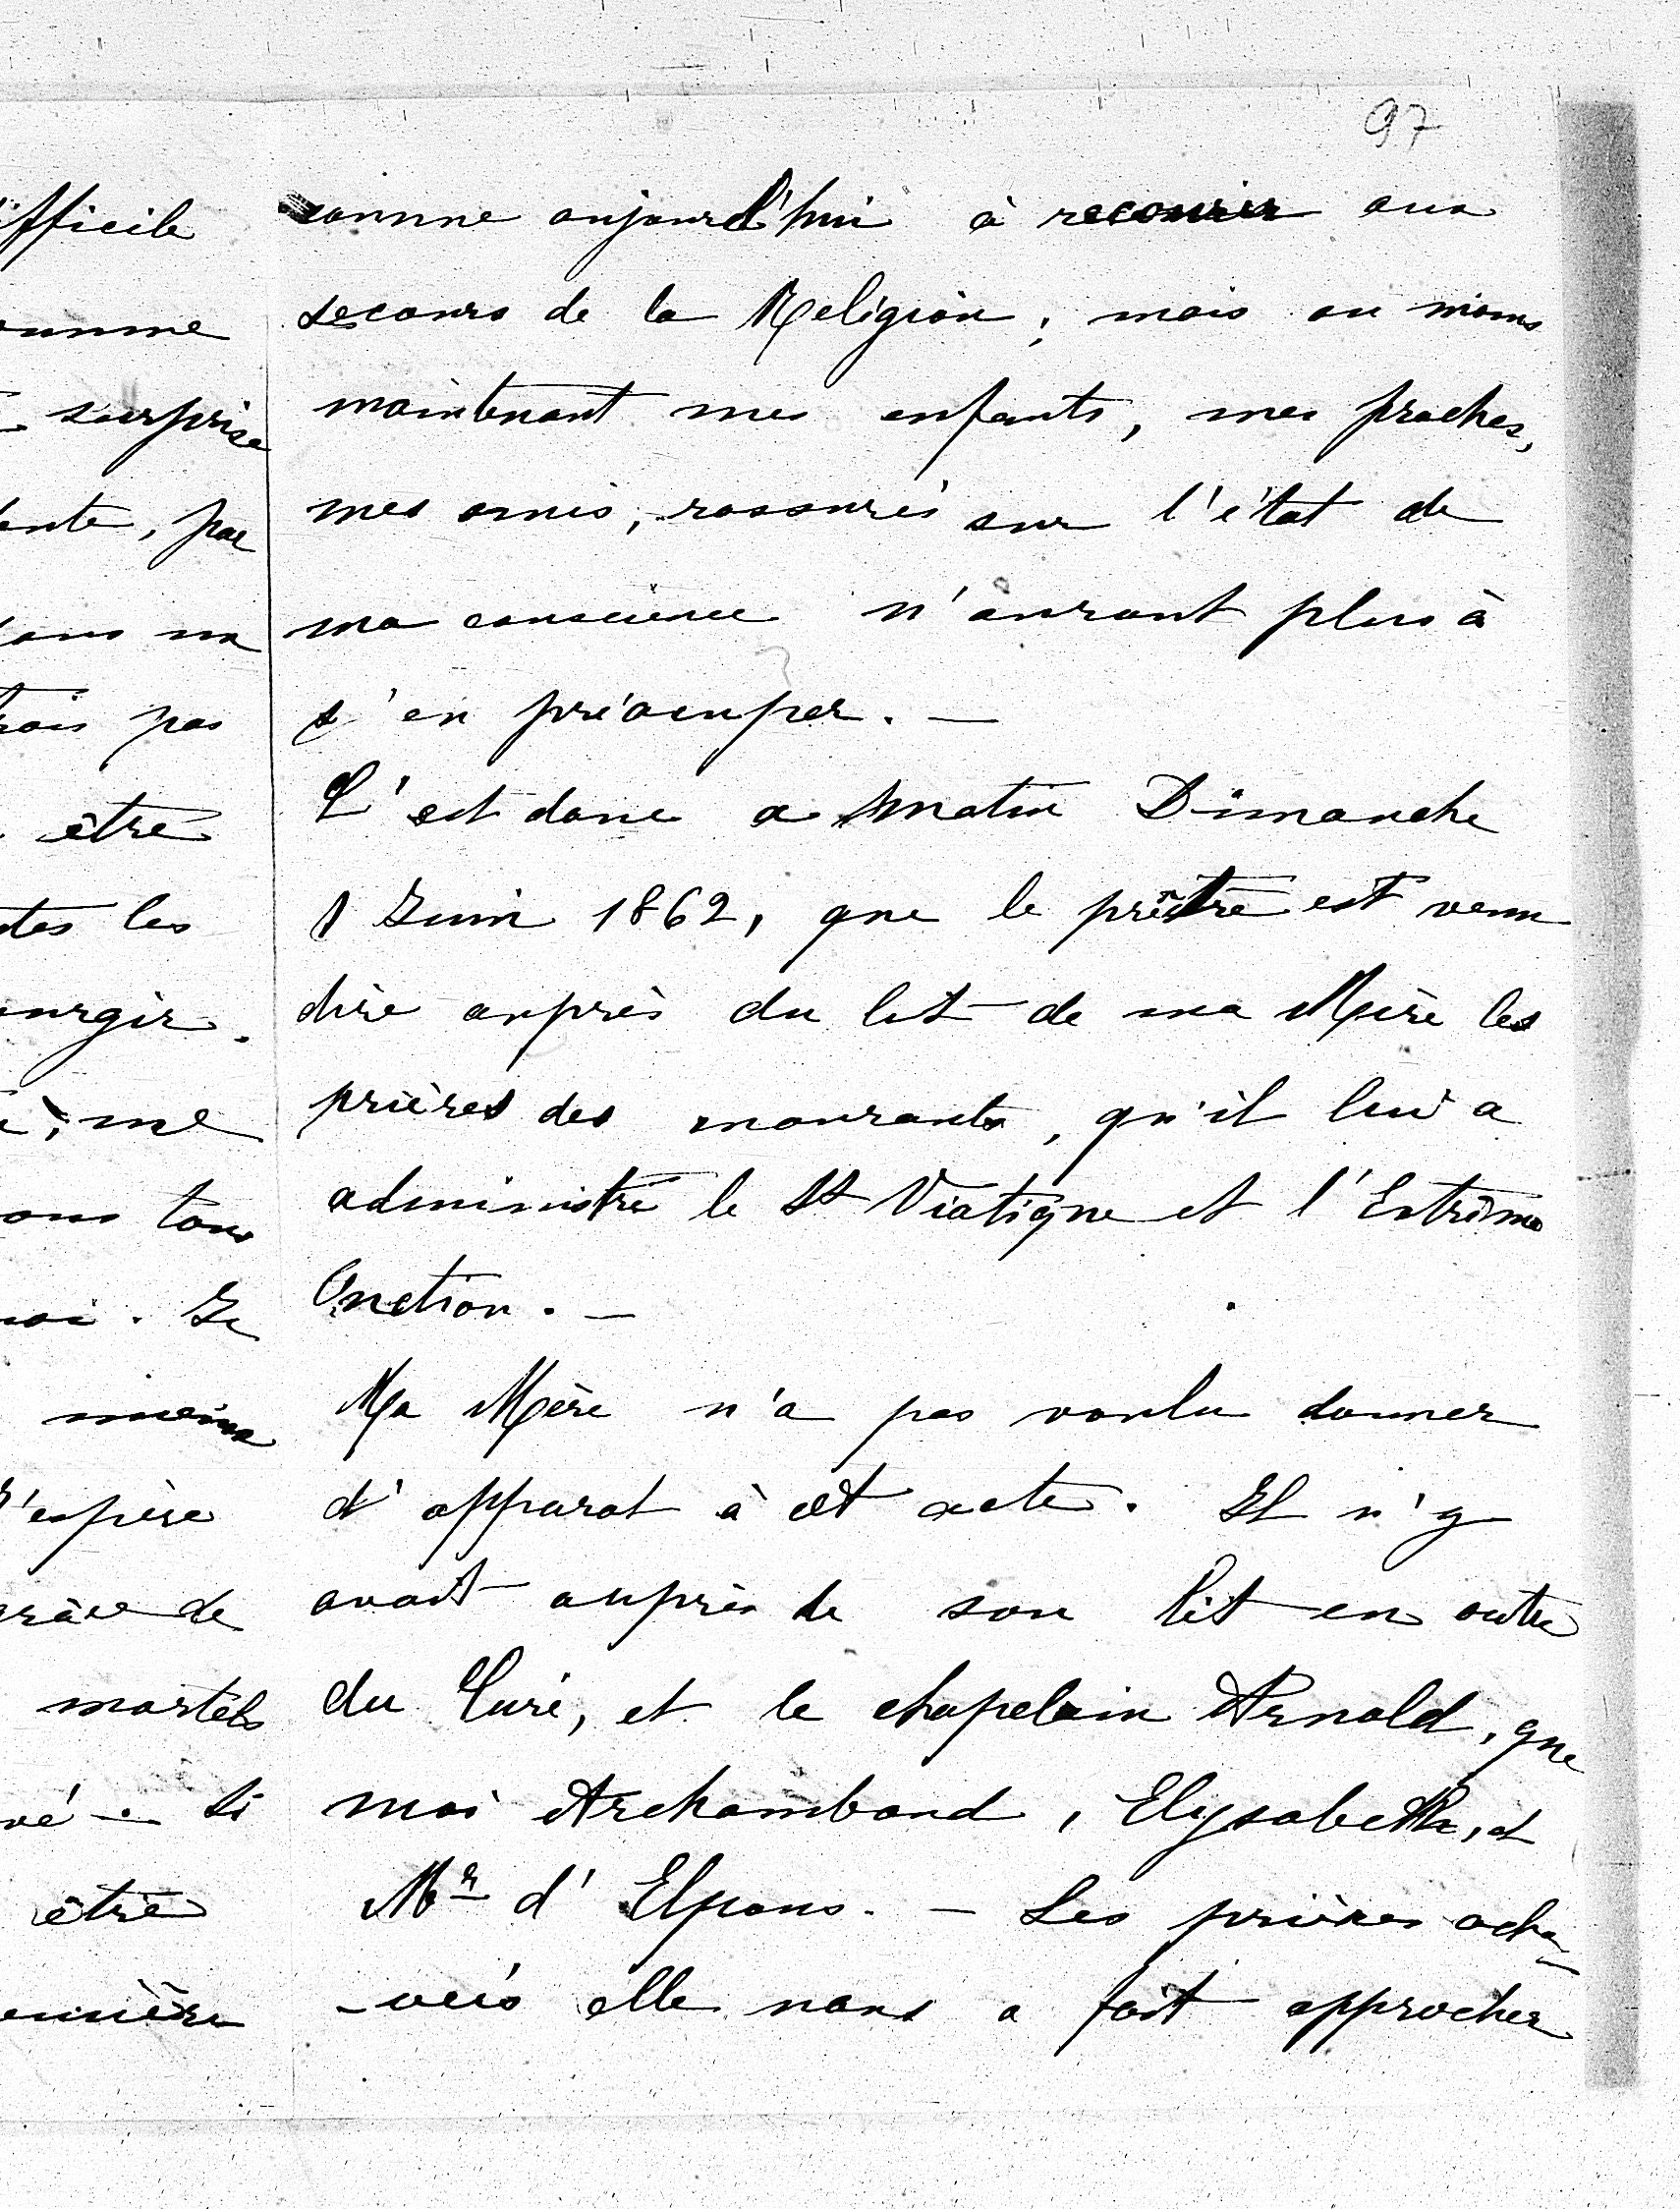 97
comme aujourd'hui à recourir aux
secours de la Religion; mais au moins
maintenant mes enfants, mes proches,
mes amis, rassurés sur l'état de
ma conscience n'auront plus à
s'en préocuper. —
C'est donc ce matin Dimanche
1 Juin 1862, que le prêtre est venu
dire auprès du lit de ma Mère les
prières des mourants, qu'il lui a
administré le St Viatique et l'Extrême
Onction. —
Ma Mère n'a pas voulu donner
d'apparat à cet acte. Il n'y
avait auprès de son lit en outre
du Curé, et le chapelain Arnold, que
moi Archambaud, Elysabeth, et
Mr d'Elpons. — Les prières ache-
-veés elle nous a fait approcher
fficile
omme
surprise
ente, par
ans un
rais pas
être
tes les
urgir.
me
ous tous
moi. Je
moins
j'espère
grâce de
mortels
vé. Si
être
emière